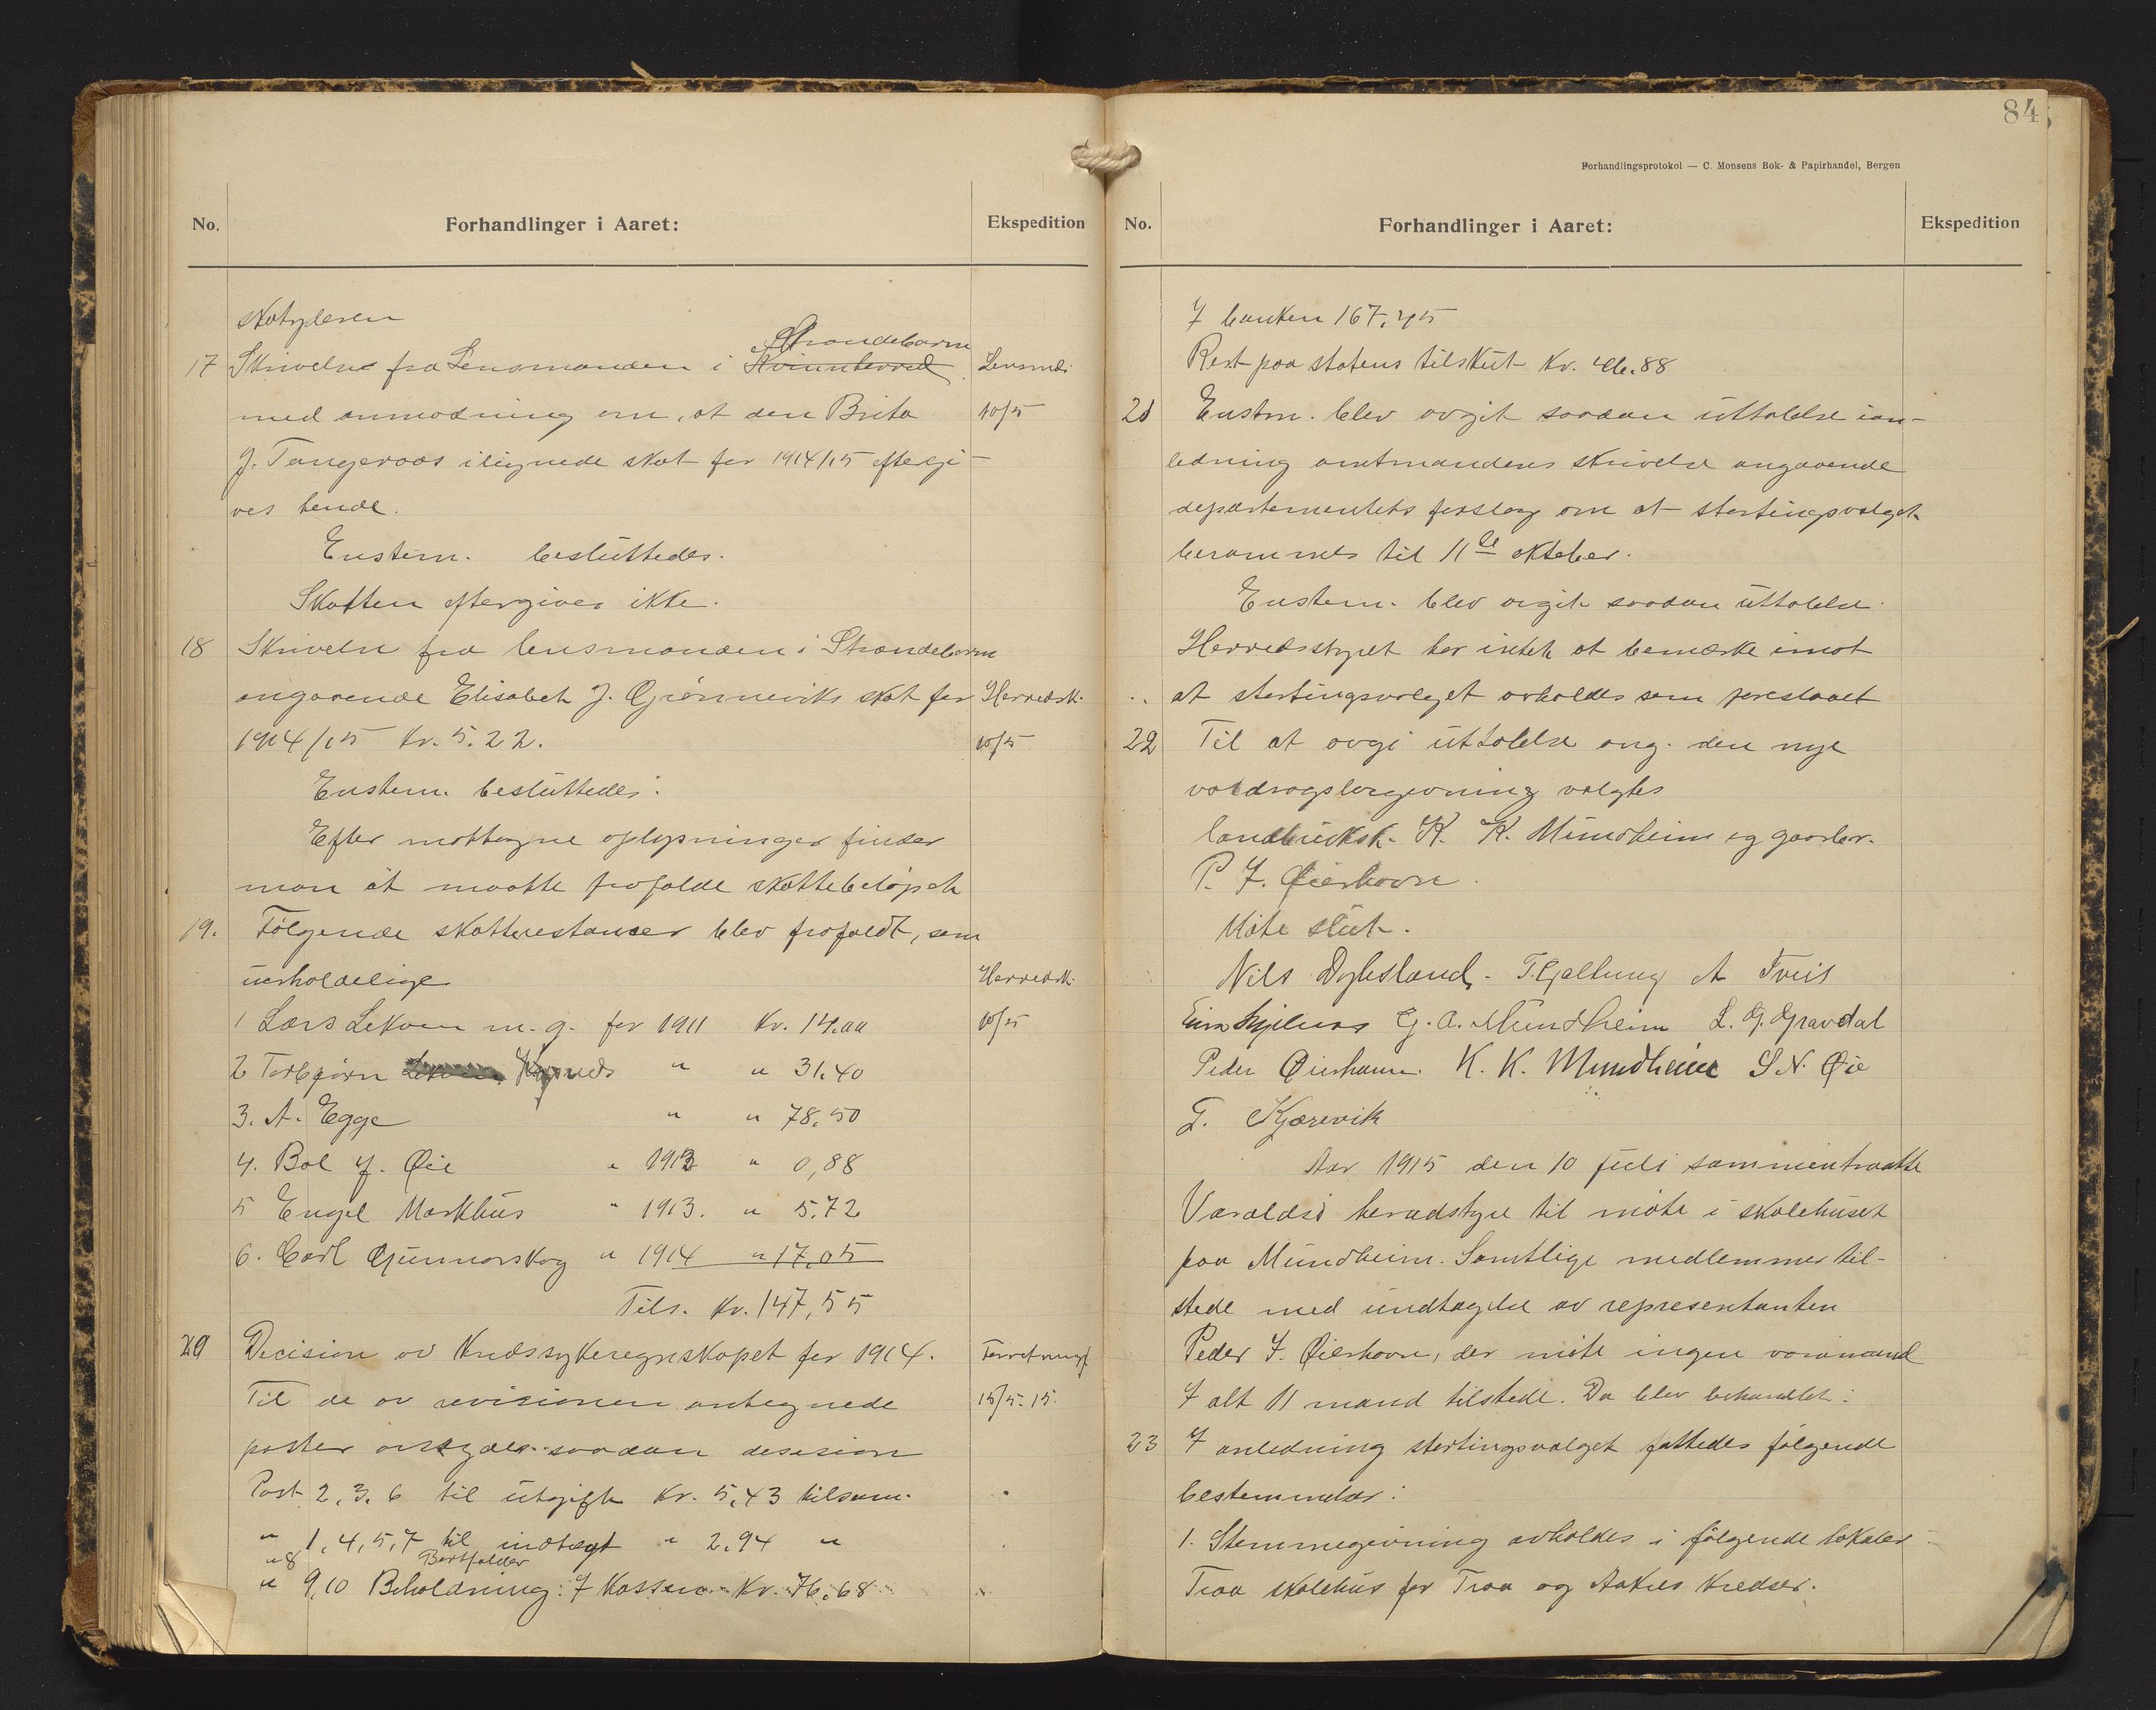 No. Forhandlinger i Aaret: Ekspedition
skatyderen
Strandebarm
17 Skrivelse fra Lensmanden i Kvinnherred Lensmd.
med anmodning om, at den Brita 10/5
J. Tangeraas ilignede skat for 1914/15 eftergi-
ves hende.
Enstem. besluttedes.
Skatten eftergives ikke.
18 Skrivelse fra lensmanden i Strandebarm
angaaende Elisabet J. Grønneviks skat for Herredsk.
1914/15 Kr. 5.22. 10/5
Enstem. besluttedes:
Efter mottagne oplysninger finder
man at maatte frafalde skattebeløpet
19. Følgende skatterestanser blev frafaldt, som
uerholdelige Herredsk.
1 Lars Lekven m. g. for 1911 Kr. 14.00 10/5
2 Torbjørn " " 31.40
3. A. Egge " " 78,50
4. Bol J. Øie " 1913 " 0,88
5 Engel Markhus " 1913. " 5.72
6. Carl Gunnarskog " 1914 " 17,05
Tils. Kr. 147,55
20 Decision av Kredssykeregnskapet for 1914.
Til de av revisionen antegnede 15/5-15.
poster avsagdes saadan desision
Post 2, 3, 6 til utgift Kr. 5,43 tilsam.
" 1, 4, 5, 7 til indtægt " 2.94 "
" 8 Bortfalder
" 9,10 Beholdning: I Kassen Kr. 76,68
84
Forhandlingsprotokol — C. Monsens Bok- & Papirhandel, Bergen
No. Forhandlinger i Aaret: Ekspedition
I banken 167,45
Rest paa statens tilskut Kr. 46.88
21 Enstm. blev avgit saadan uttalelse ian-
ledning amtmandens skrivelse angaaende
departementets forslag om at stortingsvalget
berammes til 11te oktober.
Enstem. blev avgit saadan uttalelse.
Herredsstyret har intet at bemerke imot
at stortingsvalget avholdes som foreslaaet
22 Til at avgi uttalelse ang. den nye
vasdragslovgivning valgtes
landbruksk. K. K. Mundheim og gaarbr.
P. J. Øierhavn.
Møte slut.
Nils Dyhesland. T. Gjaltung A Tveit
G. A. Mundheim L. G. Gravdal
Peder Øierhavn. K. K. Mundheim S N. Øie
T. Kjærevik
Aar 1915 den 10 juli sammentraatte
Varaldsø heradstyre til møte i skolehuset
paa Mundheim. Samtlige medlemmer til-
stede med undtagelse av representanten
Peder J. Øierhavn, der møtte ingen varamand
I alt 11 mand tilstede. Da blev behandlet:
23 I anledning stortingsvalget fattedes følgende
bestemmelser:
1. Stemmegivning avholdes i følgende lokaler
Traa skolehus for Traa og Aakres kredser.